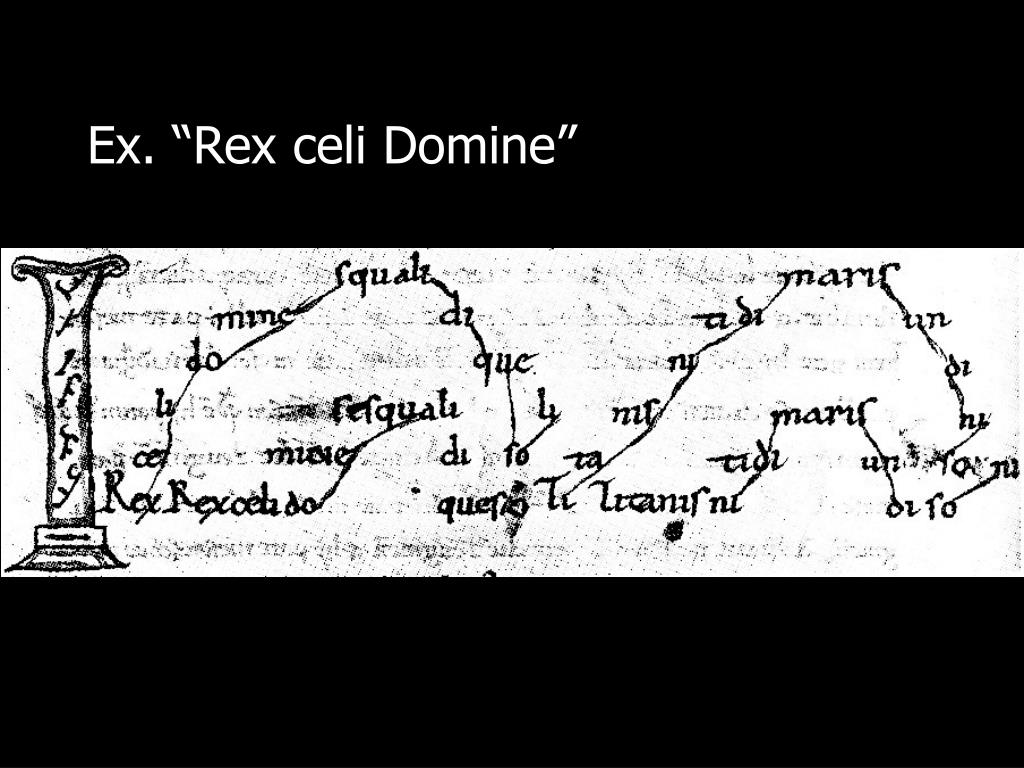 Ex. “Rex celi Domine”
squali maris
mine di ti di un
do que ni di
li squali li nis maris ni
ce mine di so ta ti di un so ni
Rex Rex celi do que so Ti litanis ni di so